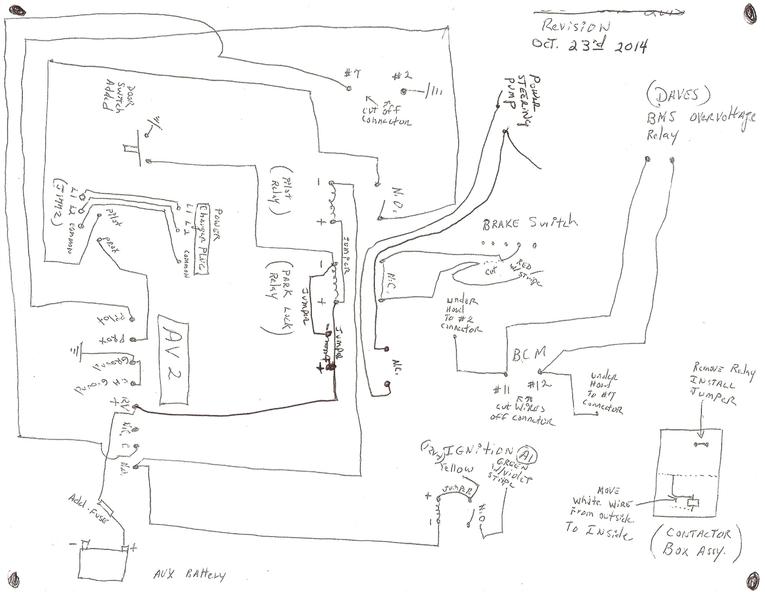 Revision
Oct. 23rd 2014
#7
#2
cut off
connector
Door
Switch
Added
Power
Steering
Pump
(DAVES)
BMS Overvoltage
Relay
(Pilot
Relay)
-
+
N.O.
Jumper
L1
L2
common
Pilot
prox
L1
L2
common
Power
Charger Plug
BRAKE Switch
cut
RED
w/stripe
N.C.
(Park Lock
Relay)
-
+
Jumper
Jumper
-
+
N.C.
under
Hood
To #2
connector
BCM
#11
#12
cut wires
off connector
under
Hood
To #7
connector
Pilot
Prox
Ground
Ground
AV2
+
N.C.
C
N.O.
Add. Fuse
-
+
AUX Battery
IGNITION
A1
Yellow
GREEN
w/violet
stripe
Jumper
+
-
N.O.
Remove Relay
INSTALL
Jumper
Move
White Wire
From outside
To Inside
(Contactor
Box Assy.)